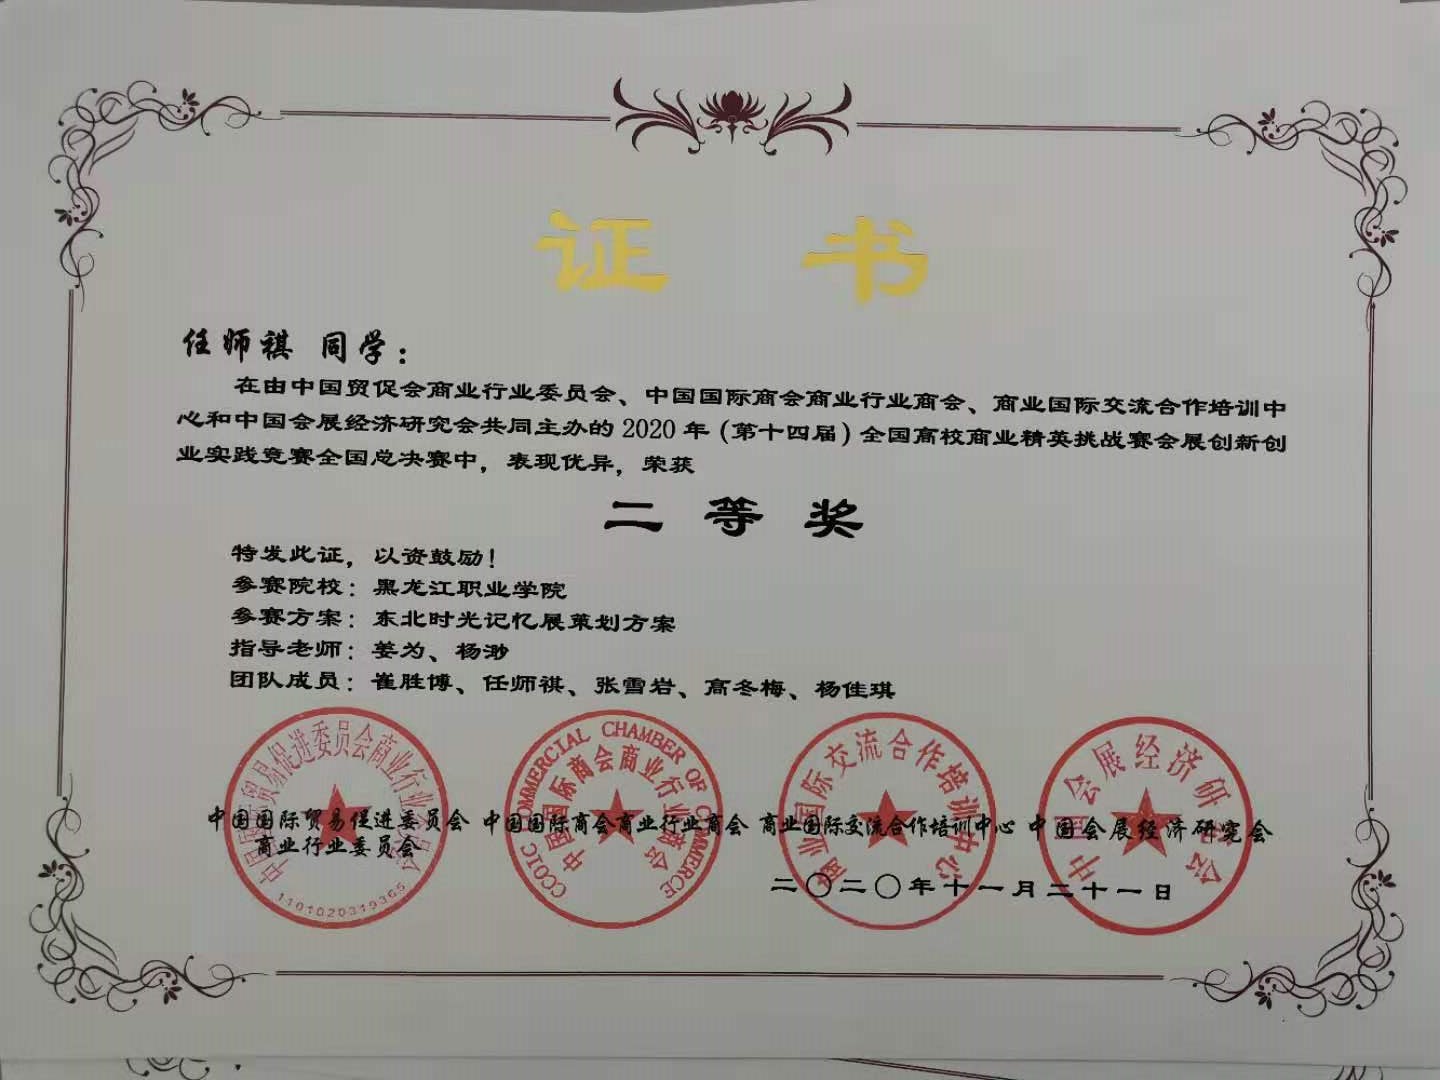 证书
任师祺 同学：
在由中国贸促会商业行业委员会、中国国际商会商业行业商会、商业国际交流合作培训中
心和中国会展经济研究会共同主办的 2020 年（第十四届）全国高校商业精英挑战赛会展创新创
业实践竞赛全国总决赛中，表现优异，荣获
二等奖
特发此证，以资鼓励！
参赛院校：黑龙江职业学院
参赛方案：东北时光记忆展策划方案
指导老师：姜为、杨渺
团队成员：崔胜博、任师祺、张雪岩、高冬梅、杨佳琪
中国国际贸易促进委员会
商业行业委员会
中国国际商会商业行业商会
商业国际交流合作培训中心
中国会展经济研究会
二〇二〇年十一月二十一日
中国国际贸易促进委员会商业行业委员会
1101020319365
CCOIC COMMERCIAL CHAMBER OF COMMERCE
中国国际商会商业行业商会
商业国际交流合作培训中心
中国会展经济研究会